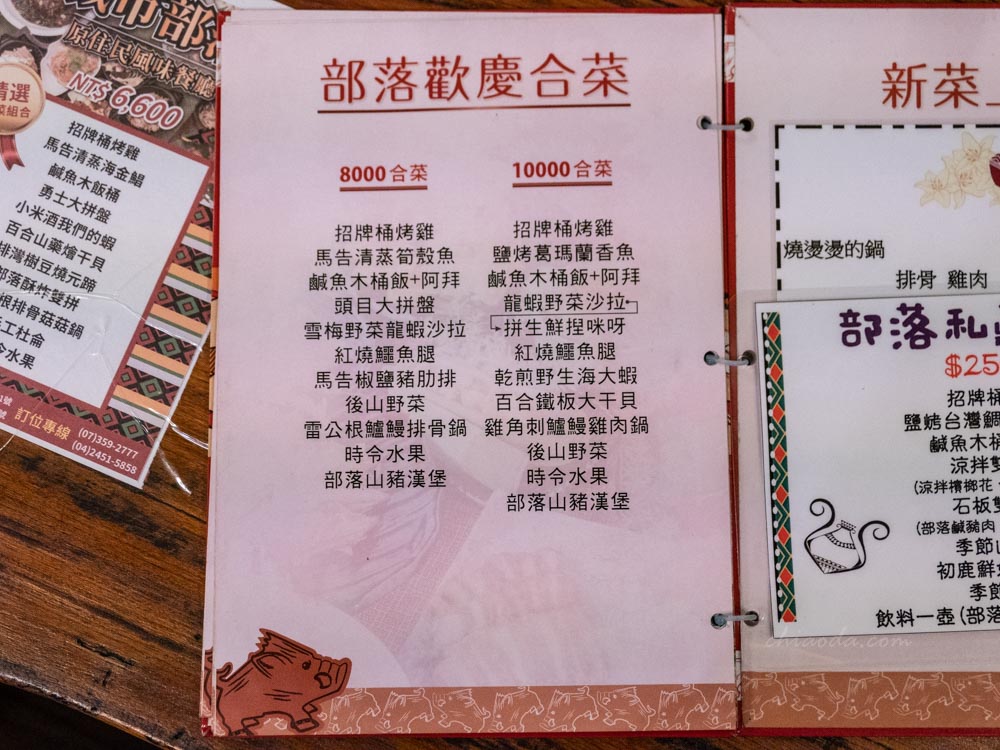 原住民風味餐廳
NT$ 6,600
精選
招牌桶烤雞
馬告清蒸海金鯧
鹹魚木飯桶
勇士大拼盤
小米酒我們的蝦
百合山藥燴干貝
排灣樹豆燒元蹄
部落酥炸雙拼
根排骨菇菇鍋
工杜侖
令水果
訂位專線
(07)359-2777
(04)2451-5858
部落歡慶合菜
8000合菜
招牌桶烤雞
馬告清蒸筍殼魚
鹹魚木桶飯+阿拜
頭目大拼盤
雪梅野菜龍蝦沙拉
紅燒鱷魚腿
馬告椒鹽豬肋排
後山野菜
雷公根鱸鰻排骨鍋
時令水果
部落山豬漢堡
10000合菜
招牌桶烤雞
鹽烤葛瑪蘭香魚
鹹魚木桶飯+阿拜
龍蝦野菜沙拉
拼生鮮捏咪呀
紅燒鱷魚腿
乾煎野生海大蝦
百合鐵板大干貝
雞角刺鱸鰻雞肉鍋
後山野菜
時令水果
部落山豬漢堡
新菜
燒燙燙的鍋
排骨 雞肉
部落私
$25
招牌桶
鹽烤台灣鯛
鹹魚木桶
涼拌雙
(涼拌檳榔花
石板雙
(部落鹹豬肉
季節山
初鹿鮮
季節
飲料一壺(部落
chiaoda.com